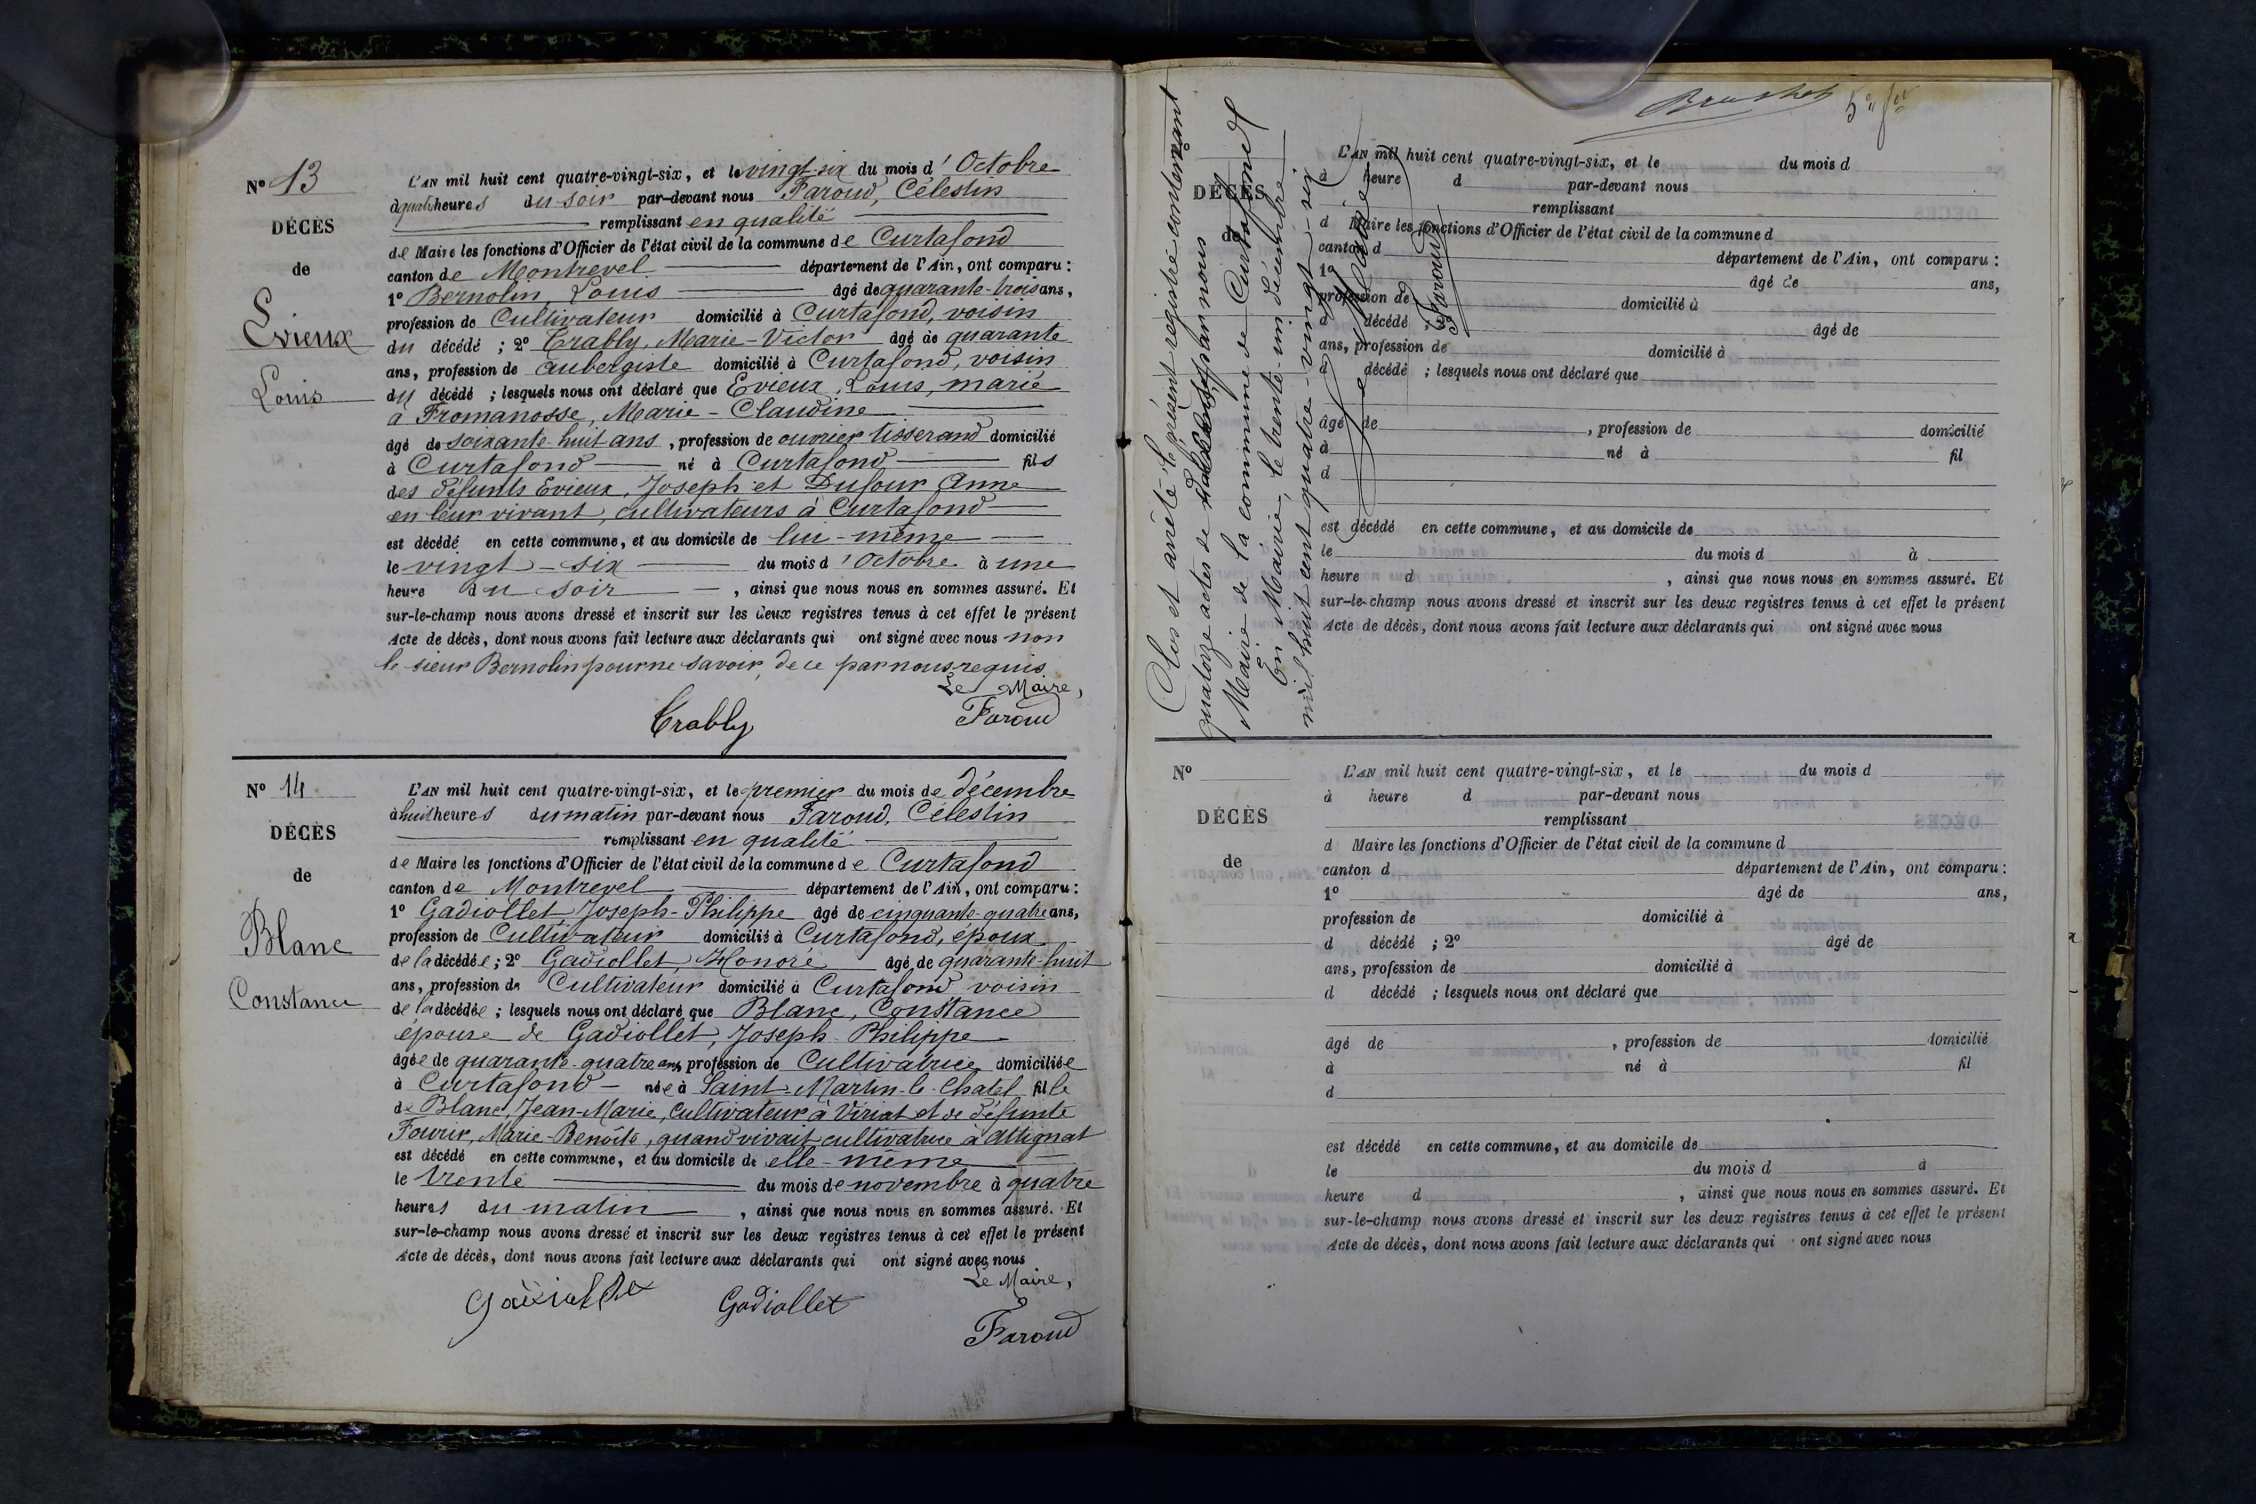 N° 13
DÉCÈS
de
Evieux
Louis
L'AN mil huit cent quatre-vingt-six, et le vingt-six du mois d'Octobre
à quatre heures du soir par-devant nous Faroud, Célestin
remplissant en qualité
de Maire les fonctions d'Officier de l'état civil de la commune de Curtafond
canton de Montrevel département de l'Ain, ont comparu :
1° Bernolin, Louis âgé de quarante-trois ans,
profession de Cultivateur domicilié à Curtafond, voisin
du décédé ; 2° Crably, Marie-Victor âgé de quarante
ans, profession de aubergiste domicilié à Curtafond, voisin
du décédé ; lesquels nous ont déclaré que Evieux, Louis, marié
à Fromanosse, Marie-Claudine
âgé de soixante-huit ans, profession de ouvrier tisserand domicilié
à Curtafond né à Curtafond fils
des défunts Evieux, Joseph et Dufour Anne
en leur vivant, cultivateurs à Curtafond
est décédé en cette commune, et au domicile de lui-même
le vingt-six du mois d'Octobre à une
heure du soir, ainsi que nous nous en sommes assuré. Et
sur-le-champ nous avons dressé et inscrit sur les deux registres tenus à cet effet le présent
Acte de décès, dont nous avons fait lecture aux déclarants qui ont signé avec nous non
le sieur Bernolin pour ne savoir, de ce par nous requis
Le Maire,
Crably Faroud
N° 14
DÉCÈS
de
Blanc
Constance
L'AN mil huit cent quatre-vingt-six, et le premier du mois de décembre
à huit heures du matin par-devant nous Faroud, Célestin
remplissant en qualité
de Maire les fonctions d'Officier de l'état civil de la commune de Curtafond
canton de Montrevel département de l'Ain, ont comparu :
1° Gadiollet, Joseph-Philippe âgé de cinquante-quatre ans,
profession de Cultivateur domicilié à Curtafond, époux
de la décédée ; 2° Gadiollet, Honoré âgé de quarante-huit
ans, profession de Cultivateur domicilié à Curtafond voisin
de la décédée ; lesquels nous ont déclaré que Blanc, Constance
épouse de Gadiollet, Joseph Philippe
âgée de quarante-quatre ans, profession de Cultivatrice domiciliée
à Curtafond née à Saint-Martin-le-Chatel fille
de Blanc, Jean-Marie, cultivateur à Viriat et de défunte
Fourir, Marie-Benoîte, quand vivait cultivatrice à Attignat
est décédé en cette commune, et au domicile de elle-même
le trente du mois de novembre à quatre
heures du matin, ainsi que nous nous en sommes assuré. Et
sur-le-champ nous avons dressé et inscrit sur les deux registres tenus à cet effet le présent
Acte de décès, dont nous avons fait lecture aux déclarants qui ont signé avec nous
Le Maire,
Gadiollet Gadiollet Faroud
5e fet
Clos et arrêté le présent registre contenant
quatorze actes de par nous
Maire de la commune de Curtafond
En Mairie, le trente-un décembre
mil huit cent quatre-vingt-six
Le Maire
Faroud
DÉCÈS
de
L'AN mil huit cent quatre-vingt-six, et le du mois d
à heure d par-devant nous
remplissant
d Maire les fonctions d'Officier de l'état civil de la commune d
canton d département de l'Ain, ont comparu :
1° âgé de ans,
profession de domicilié à
d décédé ; 2° âgé de
ans, profession de domicilié à
d décédé ; lesquels nous ont déclaré que
âgé de , profession de domicilié
à né à fil
d
est décédé en cette commune, et au domicile de
le du mois d à
heure d , ainsi que nous nous en sommes assuré. Et
sur-le-champ nous avons dressé et inscrit sur les deux registres tenus à cet effet le présent
Acte de décès, dont nous avons fait lecture aux déclarants qui ont signé avec nous
N°
DÉCÈS
de
L'AN mil huit cent quatre-vingt-six, et le du mois d
à heure d par-devant nous
remplissant
d Maire les fonctions d'Officier de l'état civil de la commune d
canton d département de l'Ain, ont comparu :
1° âgé de ans,
profession de domicilié à
d décédé ; 2° âgé de
ans, profession de domicilié à
d décédé ; lesquels nous ont déclaré que
âgé de , profession de domicilié
à né à fil
d
est décédé en cette commune, et au domicile de
le du mois d à
heure d , ainsi que nous nous en sommes assuré. Et
sur-le-champ nous avons dressé et inscrit sur les deux registres tenus à cet effet le présent
Acte de décès, dont nous avons fait lecture aux déclarants qui ont signé avec nous